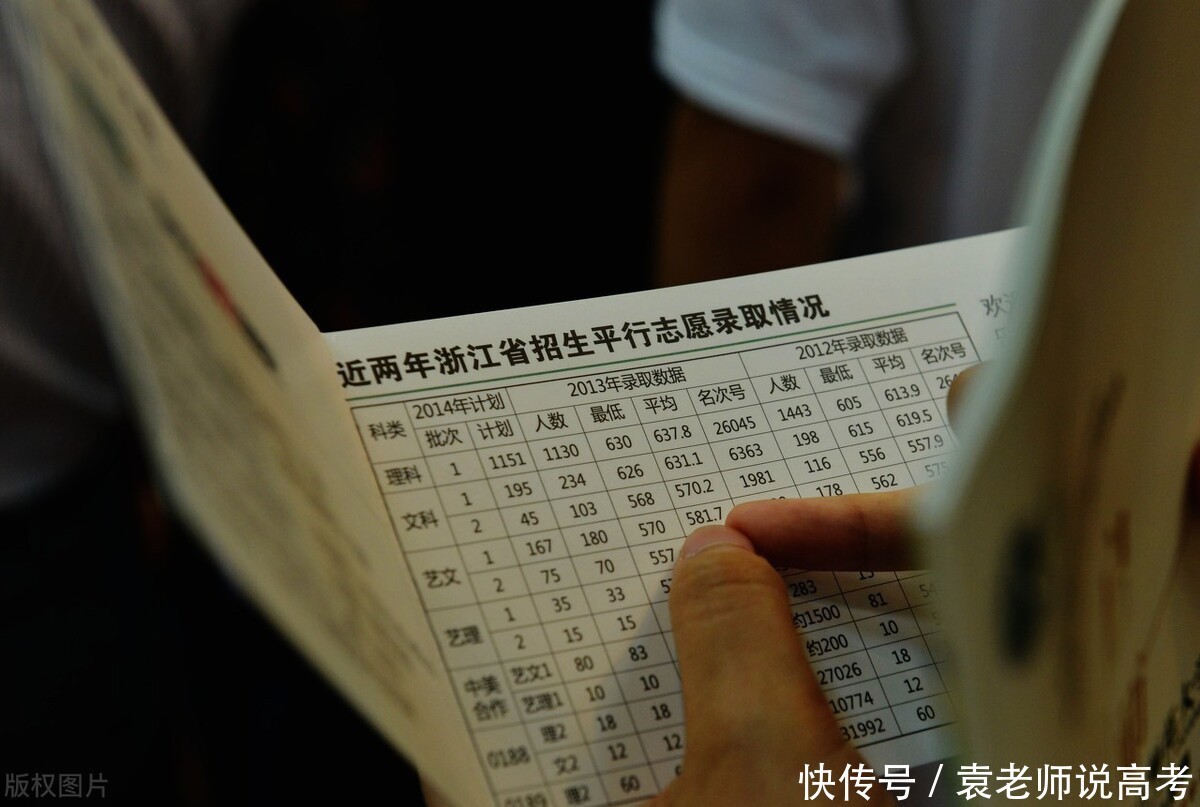 近两年浙江省招生平行志愿录取情况
欢
科类 2014年计划 2013年录取数据 2012年录取数据
批次 计划 人数 最低 平均 名次号 人数 最低 平均 名次号
理科 1 1151 1130 630 637.8 26045 1443 605 613.9
文科 1 195 234 626 631.1 6363 198 615 619.5
2 45 103 568 570.2 1981 116 556 557.9
艺文 1 167 180 570 581.7 178 562
2 75 70 557
艺理 1 35 33 283
2 15 15 约1500 81
中美合作 艺文1 80 83 约200 10
艺理1 10 10 27026 18
0188 理2 18 18 10774 12
文2 12 12 31992 60
0189 理2 60
版权图片
快传号 / 袁老师说高考